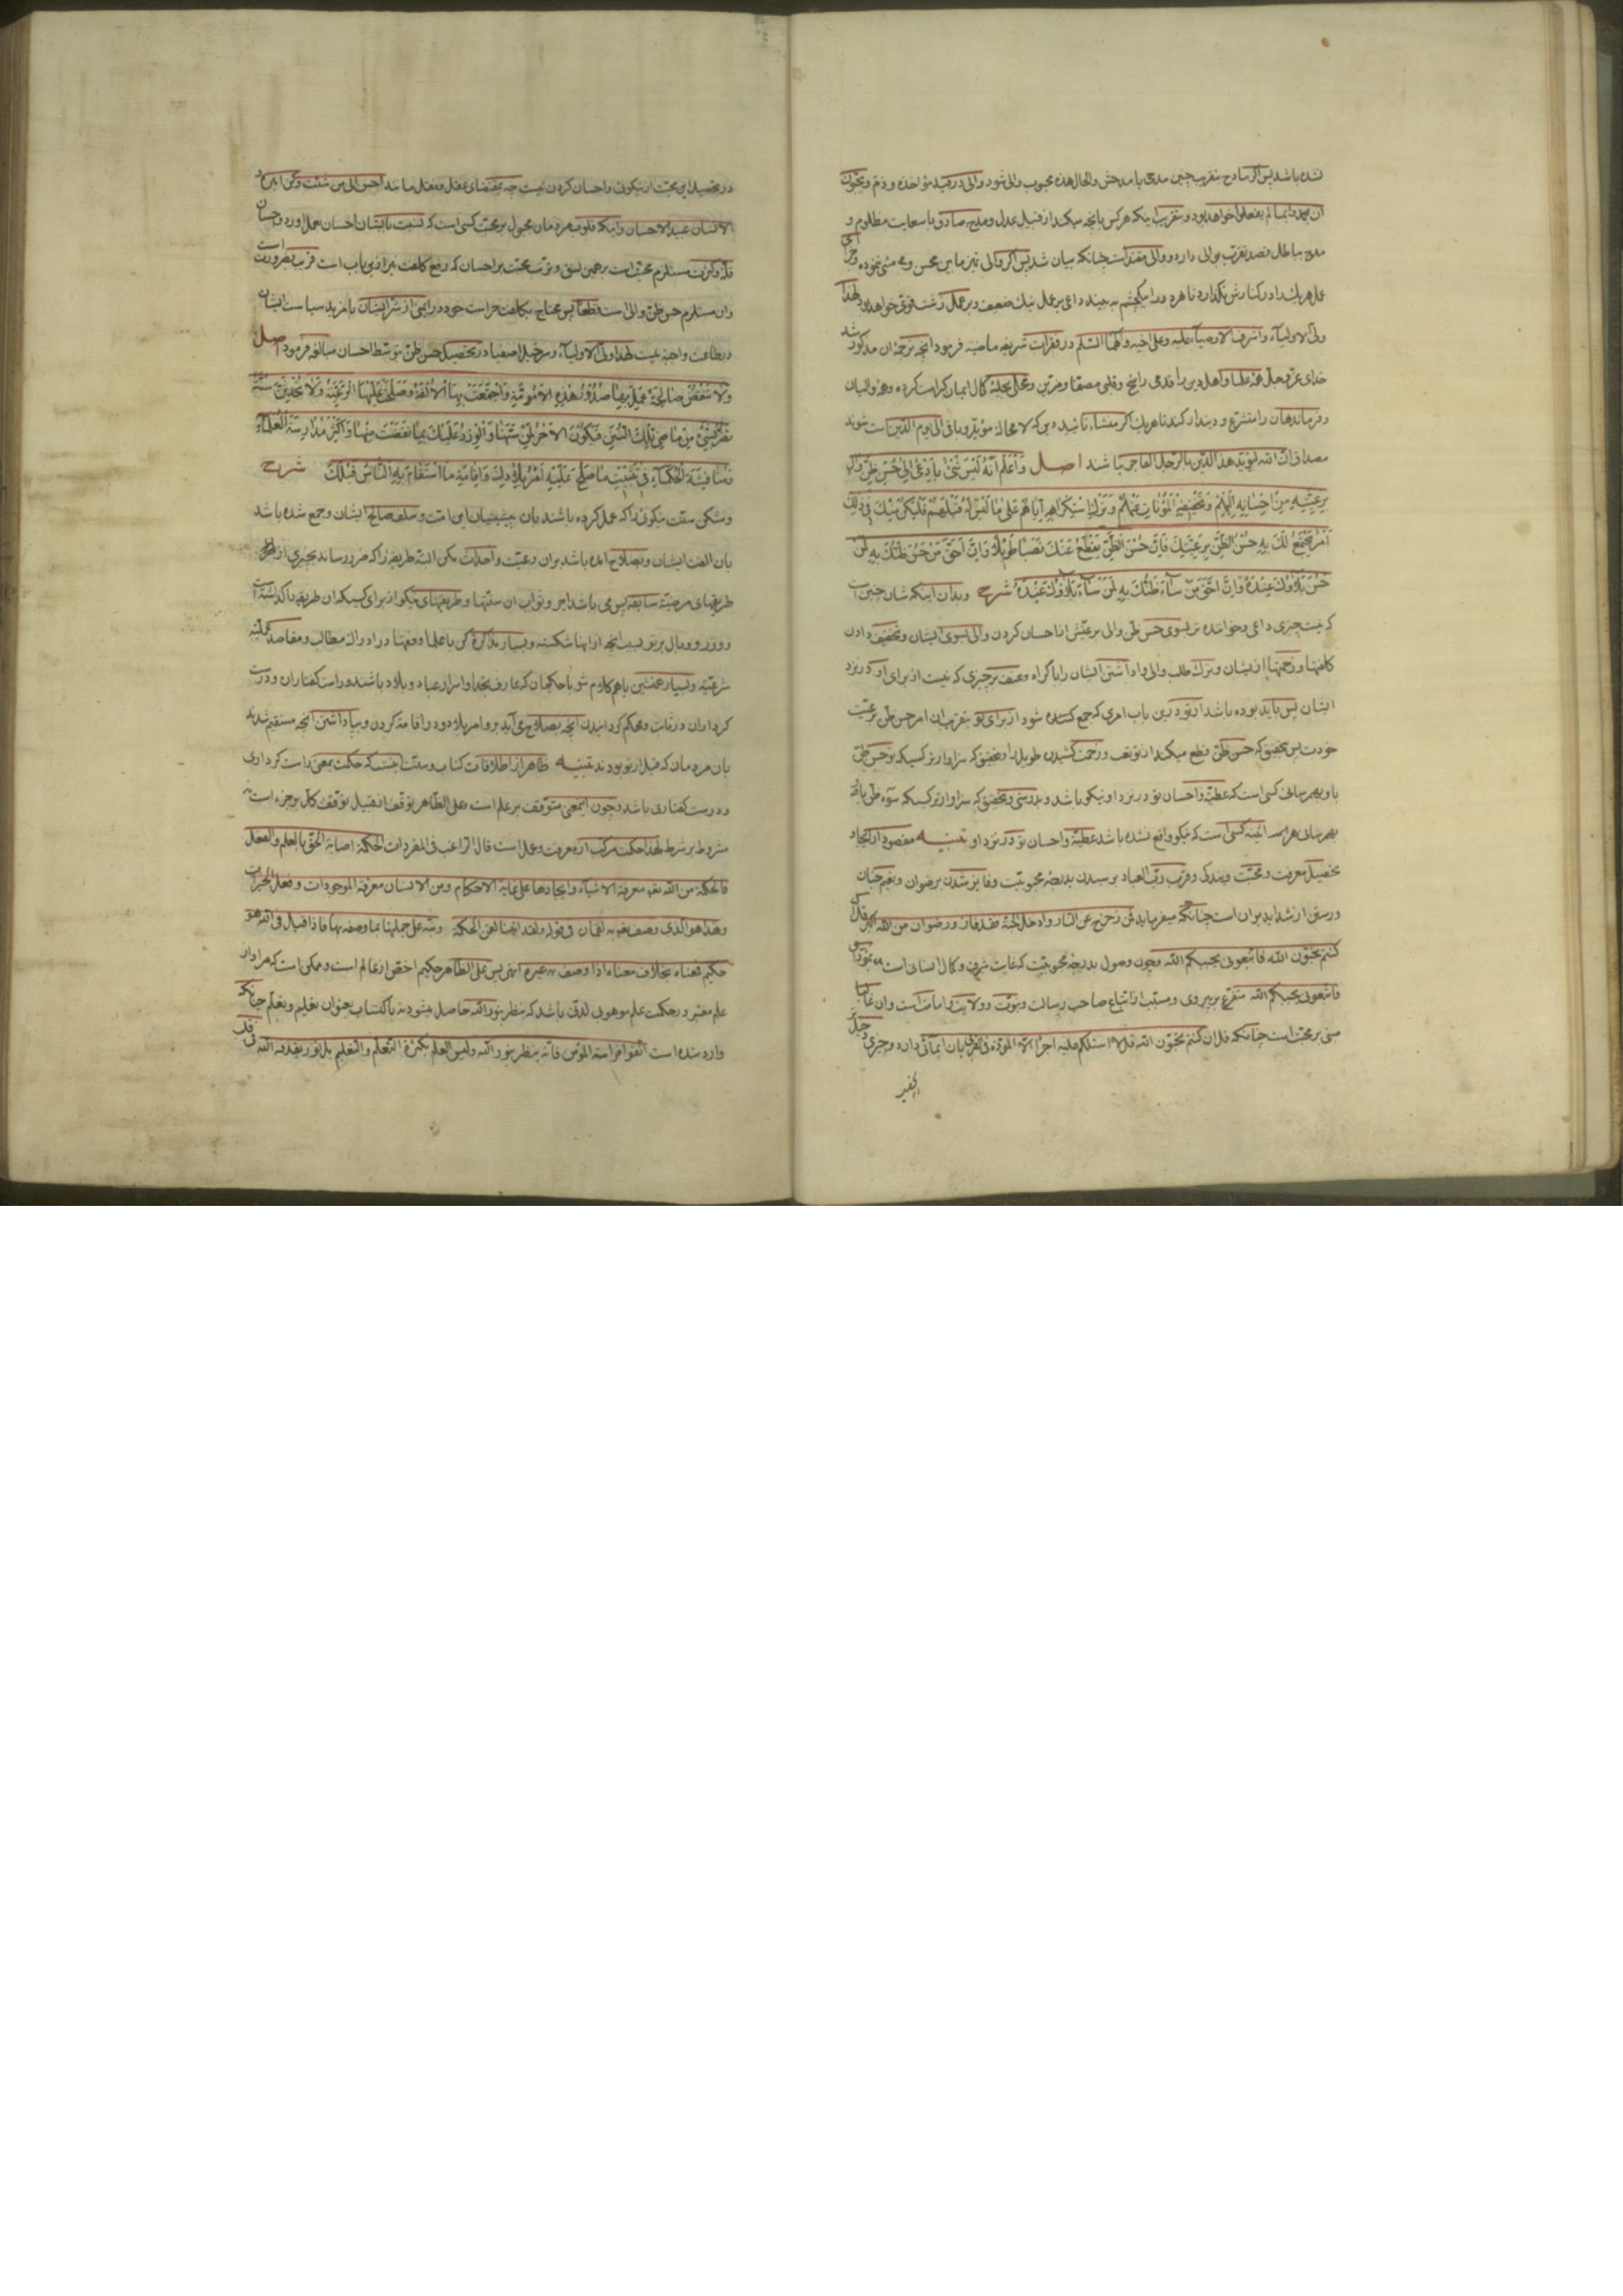 شده باشد پس اگر مادح بتقریب چنین مدحی یا مدحش والحال هذه محبوب والی شود والی در قید مؤاخذه و ذم و یحبون
ان یحمدوا بما لم یفعلوا خواهد بود و بتقریب اینکه هرکس بانچه میکند از قبیل عدل و مدح صادق یا سعایت مظلوم و
مدح بباطل قصد تقرب بوالی دارد و والی مقتداست چنانکه بیان شد پس اگر والی تمیز مابین محسن و مسئ ننموده و جزای
عمل هریک را در کنارش نگذارد تا هردو را بیکچشم به بیند داعی بر عمل نیک ضعیف و بر عمل زشت قوی خواهد بود لهذا
ولی الاولیآء و اشرف الاوصیآء علیه و علی اخیه و آلهما السلم در فقرات شریفه ماضیه فرمود انچه ترجمهٔ ان مذکور شد
خدای عز و جل همهٔ علما و اهل دین را قدمی راسخ و قلبی مصفا و مزین و محلی بحلیهٔ کمال ایمان کرامت کرده و همه والیان
و فرماندهان را متشرع و دیندار کند تا هریک اگر منشاء تائید دین که لا محاله مؤید و باقی الی یوم الدین است شوند
مصداق ان الله لیؤید هذا الدین بالرجل الفاجر نباشند اصل وَاعْلَمْ اَنَّهُ لَیْسَ شَیْءٌ بِاَدْعٰی اِلٰی حُسْنِ ظَنِّ وَالٍ
بِرَعِیَّتِهِ مِنْ اِحْسَانِهِ اِلَیْهِمْ وَتَخْفِیفِهِ الْمَؤُنَاتِ عَنْهُمْ وَتَرْكِ اسْتِكْرَاهِهِ اِیَّاهُمْ عَلٰی مَا لَیْسَ لَهُ قِبَلَهُمْ فَلْیَكُنْ مِنْكَ فِی ذٰلِكَ
اَمْرٌ یَجْتَمِعُ لَكَ بِهِ حُسْنُ الظَّنِّ بِرَعِیَّتِكَ فَاِنَّ حُسْنَ الظَّنِّ یَقْطَعُ عَنْكَ نَصَبًا طَوِیلًا وَاِنَّ اَحَقَّ مَنْ حَسُنَ ظَنُّكَ بِهِ لَمَنْ
حَسُنَ بَلَاؤُكَ عِنْدَهُ وَاِنَّ اَحَقَّ مَنْ سَآءَ ظَنُّكَ بِهِ لَمَنْ سَآءَ بَلَاؤُكَ عِنْدَهُ شرح و بدان اینکه شان چنین است
که نیست چیزی داعی و خواننده تر بسوی حسن ظن والی برعیتش از احسان کردن والی بسوی ایشان و تخفیف دادن
کلفتها و زحمتها از ایشان و ترک طلب والی و اداشتن ایشان را باکراه و عنف بر چیزی که نیست از برای او در نزد
ایشان پس باید بوده باشد از تو درین باب امری که جمع کننده شود از برای تو بتقریب ان امر حسن ظن برعیت
خودت پس بتحقیق که حسن ظن قطع میکند از تو تعب و زحمت کشیدن طویل را و بتحقیق که سزاوارتر کسیکه تو حسن ظن
باو بهم رسانی کسی است که عطیه و احسان تو در نزد او نیکو باشد و بدرستی و تحقیق که سزاوارتر کسیکه سوء ظن باو
بهم رسانی هراینه کسی است که نیکو واقع نشده باشد عطیه و احسان تو در نزد او تنبیه مقصود از ایجاد
تحصیل معرفت و محبت و بندگی و قرب رب العباد و رسیدن بدرجه محبوبیت و فایز شدن برضوان و نعیم جنان
و رستن از شداید نیران است چنانکه میفرماید فمن زحزح عن النار و ادخل الجنة فقد فاز و رضوان من الله اکبر قل ان
کنتم تحبون الله فاتبعونی یحببکم الله و چون وصول بدرجه محبوبیت که غایت شرف و کمال انسانی است بمؤدای
فاتبعونی یحببکم الله متفرع بر پیروی و مسبب از اتباع صاحب رسالت و نبوت و ولایت و امامت است و ان غالبا
مبنی بر محبت است چنانکه قل ان کنتم تحبون الله قل لا اسئلکم علیه اجرا الا المودة فی القربی بان ایمائی دارد و چیزی
در تحصیل این محبت از نیکوئی و احسان کردن نیست چه بمقتضای عقل و نقل ما شد احسن الی من شئت و کن امیره و
الانسان عبید الاحسان و اینکه قلوب مردمان مجبول بر محبت کسی است که نسبت بایشان احسان بعمل اورد و احسان
قلا و کثرت مستلزم محبت است بر همین نسق و ترتب محبت بر احسان که رفع کلفت نیز ازین باب است قریب بضرورت است
وان مستلزم حسن ظن والی است قطعا پس محتاج بکلفت حراست خود و رایمنی از شر ایشان یا مزید سیاست ایشان
در طاعت واجبه نیست لهذا ولی الاولیآء و سرخیل اصفیا در تحصیل حسن ظن بتوسط احسان مبالغه فرمود اصل
وَلَا تَنْقُضْ سُنَّةً صَالِحَةً عَمِلَ بِهَا صُدُورُ هٰذِهِ الْاُمَّةِ وَاجْتَمَعَتْ بِهَا الْاُلْفَةُ وَصَلَحَتْ عَلَیْهَا الرَّعِیَّةُ وَلَا تُحْدِثَنَّ سُنَّةً
تَضُرُّ بِشَیْءٍ مِنْ مَاضِی تِلْكَ السُّنَنِ فَیَكُونَ الْاَجْرُ لِمَنْ سَنَّهَا وَالْوِزْرُ عَلَیْكَ بِمَا نَقَضْتَ مِنْهَا وَاَكْثِرْ مُدَارَسَةَ الْعُلَمَآءِ
وَمُنَافَثَةَ الْحُكَمَآءِ فِی تَثْبِیتِ مَا صَلَحَ عَلَیْهِ اَمْرُ بِلَادِكَ وَاِقَامَةِ مَا اسْتَقَامَ بِهِ النَّاسُ قَبْلَكَ شرح
و مشکن سنت نیکو را که عمل کرده باشند بان پیشینیان این امت و سلف صالح ایشان و جمع شده باشد
بان الفت ایشان و بصلاح امده باشد بران رعیت و احداث مکن البته طریقه را که ضرر رساند بچیزی از ان
طریقهای مرضیه سابقه پس می باشد اجر و ثواب ان سنتها و طریقهای نیکو از برای کسیکه ان طریقه را گذاشته است
و وزر و وبال بر تو بسبب انچه از انها شکسته و بسیار مذاکره کن با علما و فقها در ادراک مطالب و مقاصد عملیه
شرعیه و بسیار همنشین باهم کلام شو با حکیمان که عارف بخدا و اسرار عباد و بلاد باشند و راست گفتاران و درست
کرداران در ثابت و محکم گردانیدن انچه بصلاح می آید برو امر بلاد و در اقامة کردن و بپا داشتن انچه مستقیم شدند
بان مردمان که قبل از تو بودند تنبیه ظاهر از اطلاقات کتاب و سنت اینست که حکمت بمعنی راست کرداری
و درست گفتاری باشد و چون اینمعنی متوقف بر علم است و علی الظاهر توقف از قبیل توقف کل بر جزء است نه
مشروط بر شرط لهذا حکمت مرکب از معرفت و عمل است قال الراغب فی المفردات الحکمة اصابة الحق بالعلم و العقل
فالحکمة من الله تعالی معرفة الاشیآء و ایجادها علی غایة الاحکام و من الانسان معرفة الموجودات و فعل الخیرات
و هذا هو الذی وصف به لقمان فی قوله و لقد اتینا لقمن الحکمة و نبه علی جملتها بما وصفه بها فاذا قیل فی الله هو
حکیم فمعناه بخلاف معناه اذا وصف به غیره انتهی پس علی الظاهر حکیم اخص از عالم است و ممکن است که مراد از
علم معتبر در حکمت علم موهوبی لدنی باشد که بنظر بنور الله حاصل میشود نه باکتساب بعنوان تعلیم و تعلم چنانکه
وارد شده است اتقوا فراسة المؤمن فانه ینظر بنور الله و لیس العلم بکثرة التعلم و التعلیم بل نور یقذفه الله فی قلب